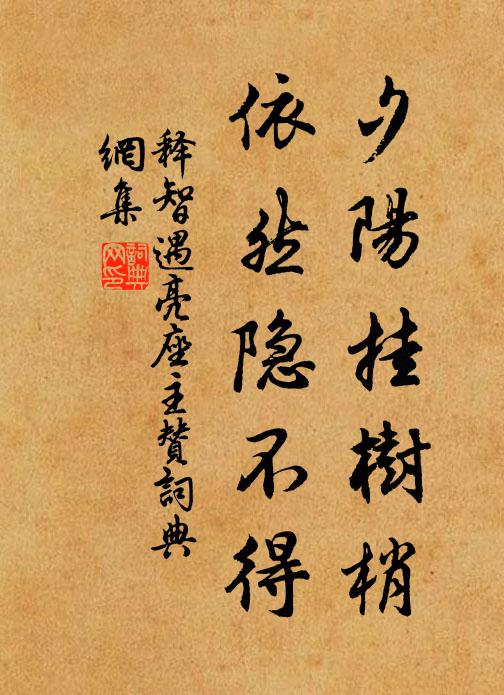 夕陽挂樹梢
依然隐不得
释智遇亮座主赞詞典
網集
詞典
网印